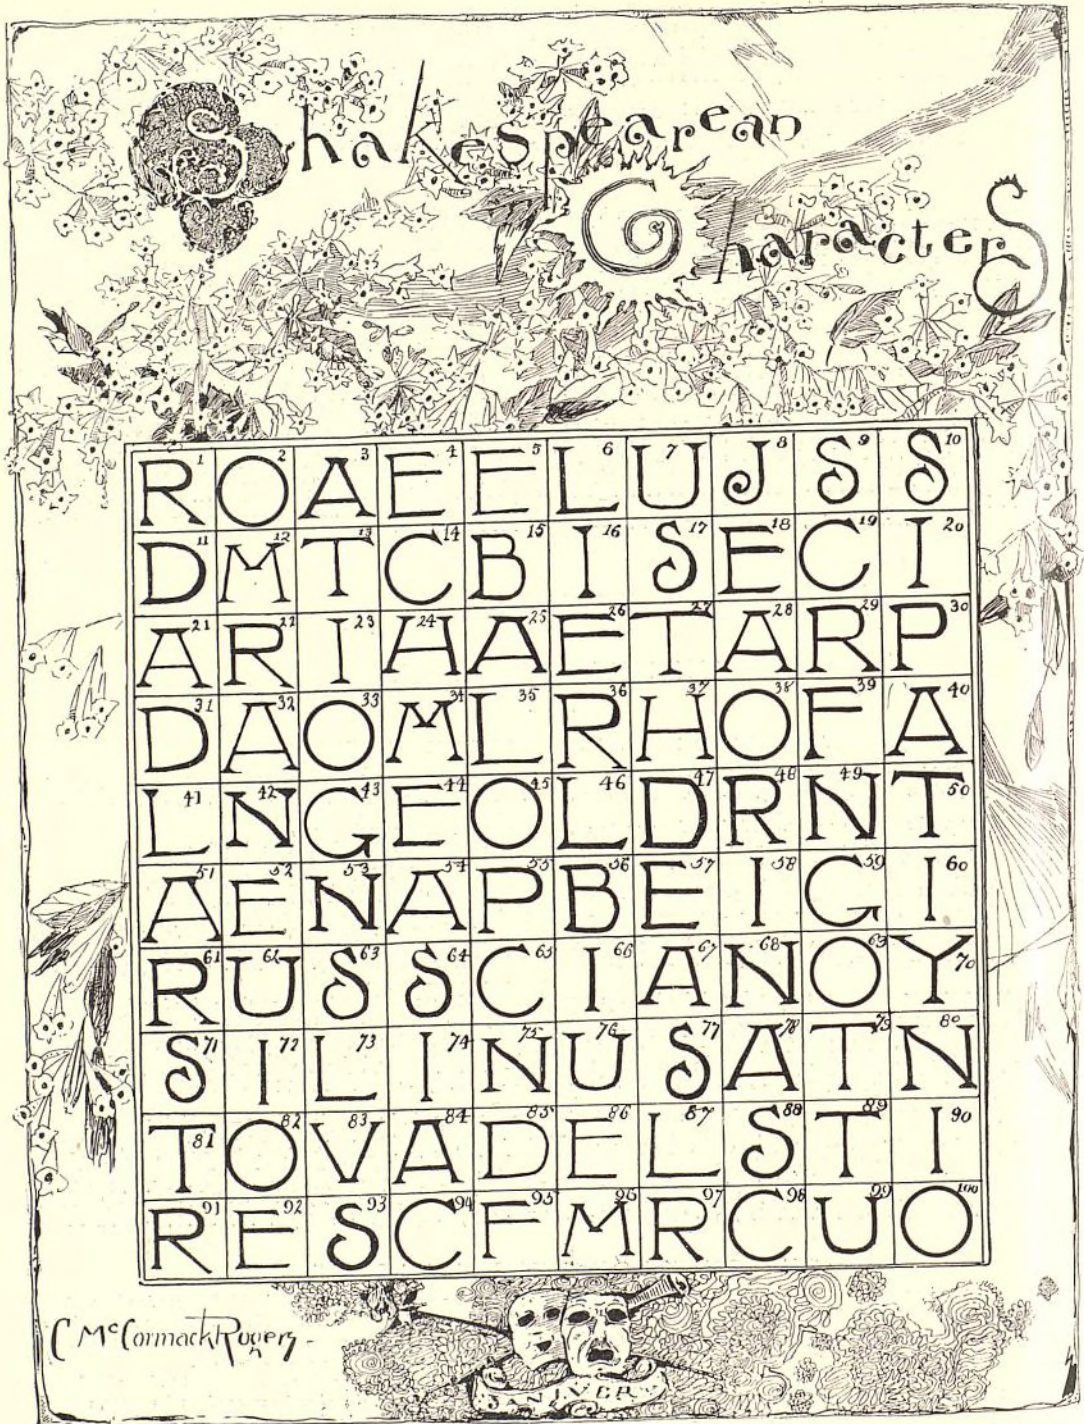 Shakespearean
CharacterS
R 1 O 2 A 3 E 4 E 5 L 6 U 7 J 8 S 9 S 10
D 11 M 12 T 13 C 14 B 15 I 16 S 17 E 18 C 19 I 20
A 21 R 22 I 23 H 24 A 25 E 26 T 27 A 28 R 29 P 30
D 31 A 32 O 33 M 34 L 35 R 36 H 37 O 38 F 39 A 40
L 41 N 42 G 43 E 44 O 45 L 46 D 47 R 48 N 49 T 50
A 51 E 52 N 53 A 54 P 55 B 56 E 57 I 58 G 59 I 60
R 61 U 62 S 63 S 64 C 65 I 66 A 67 N 68 O 69 Y 70
S 71 I 72 L 73 I 74 N 75 U 76 S 77 A 78 T 79 N 80
T 81 O 82 V 83 A 84 D 85 E 86 L 87 S 88 T 89 I 90
R 91 E 92 S 93 C 94 F 95 M 96 R 97 C 98 U 99 O 100
C McCormack Rogers